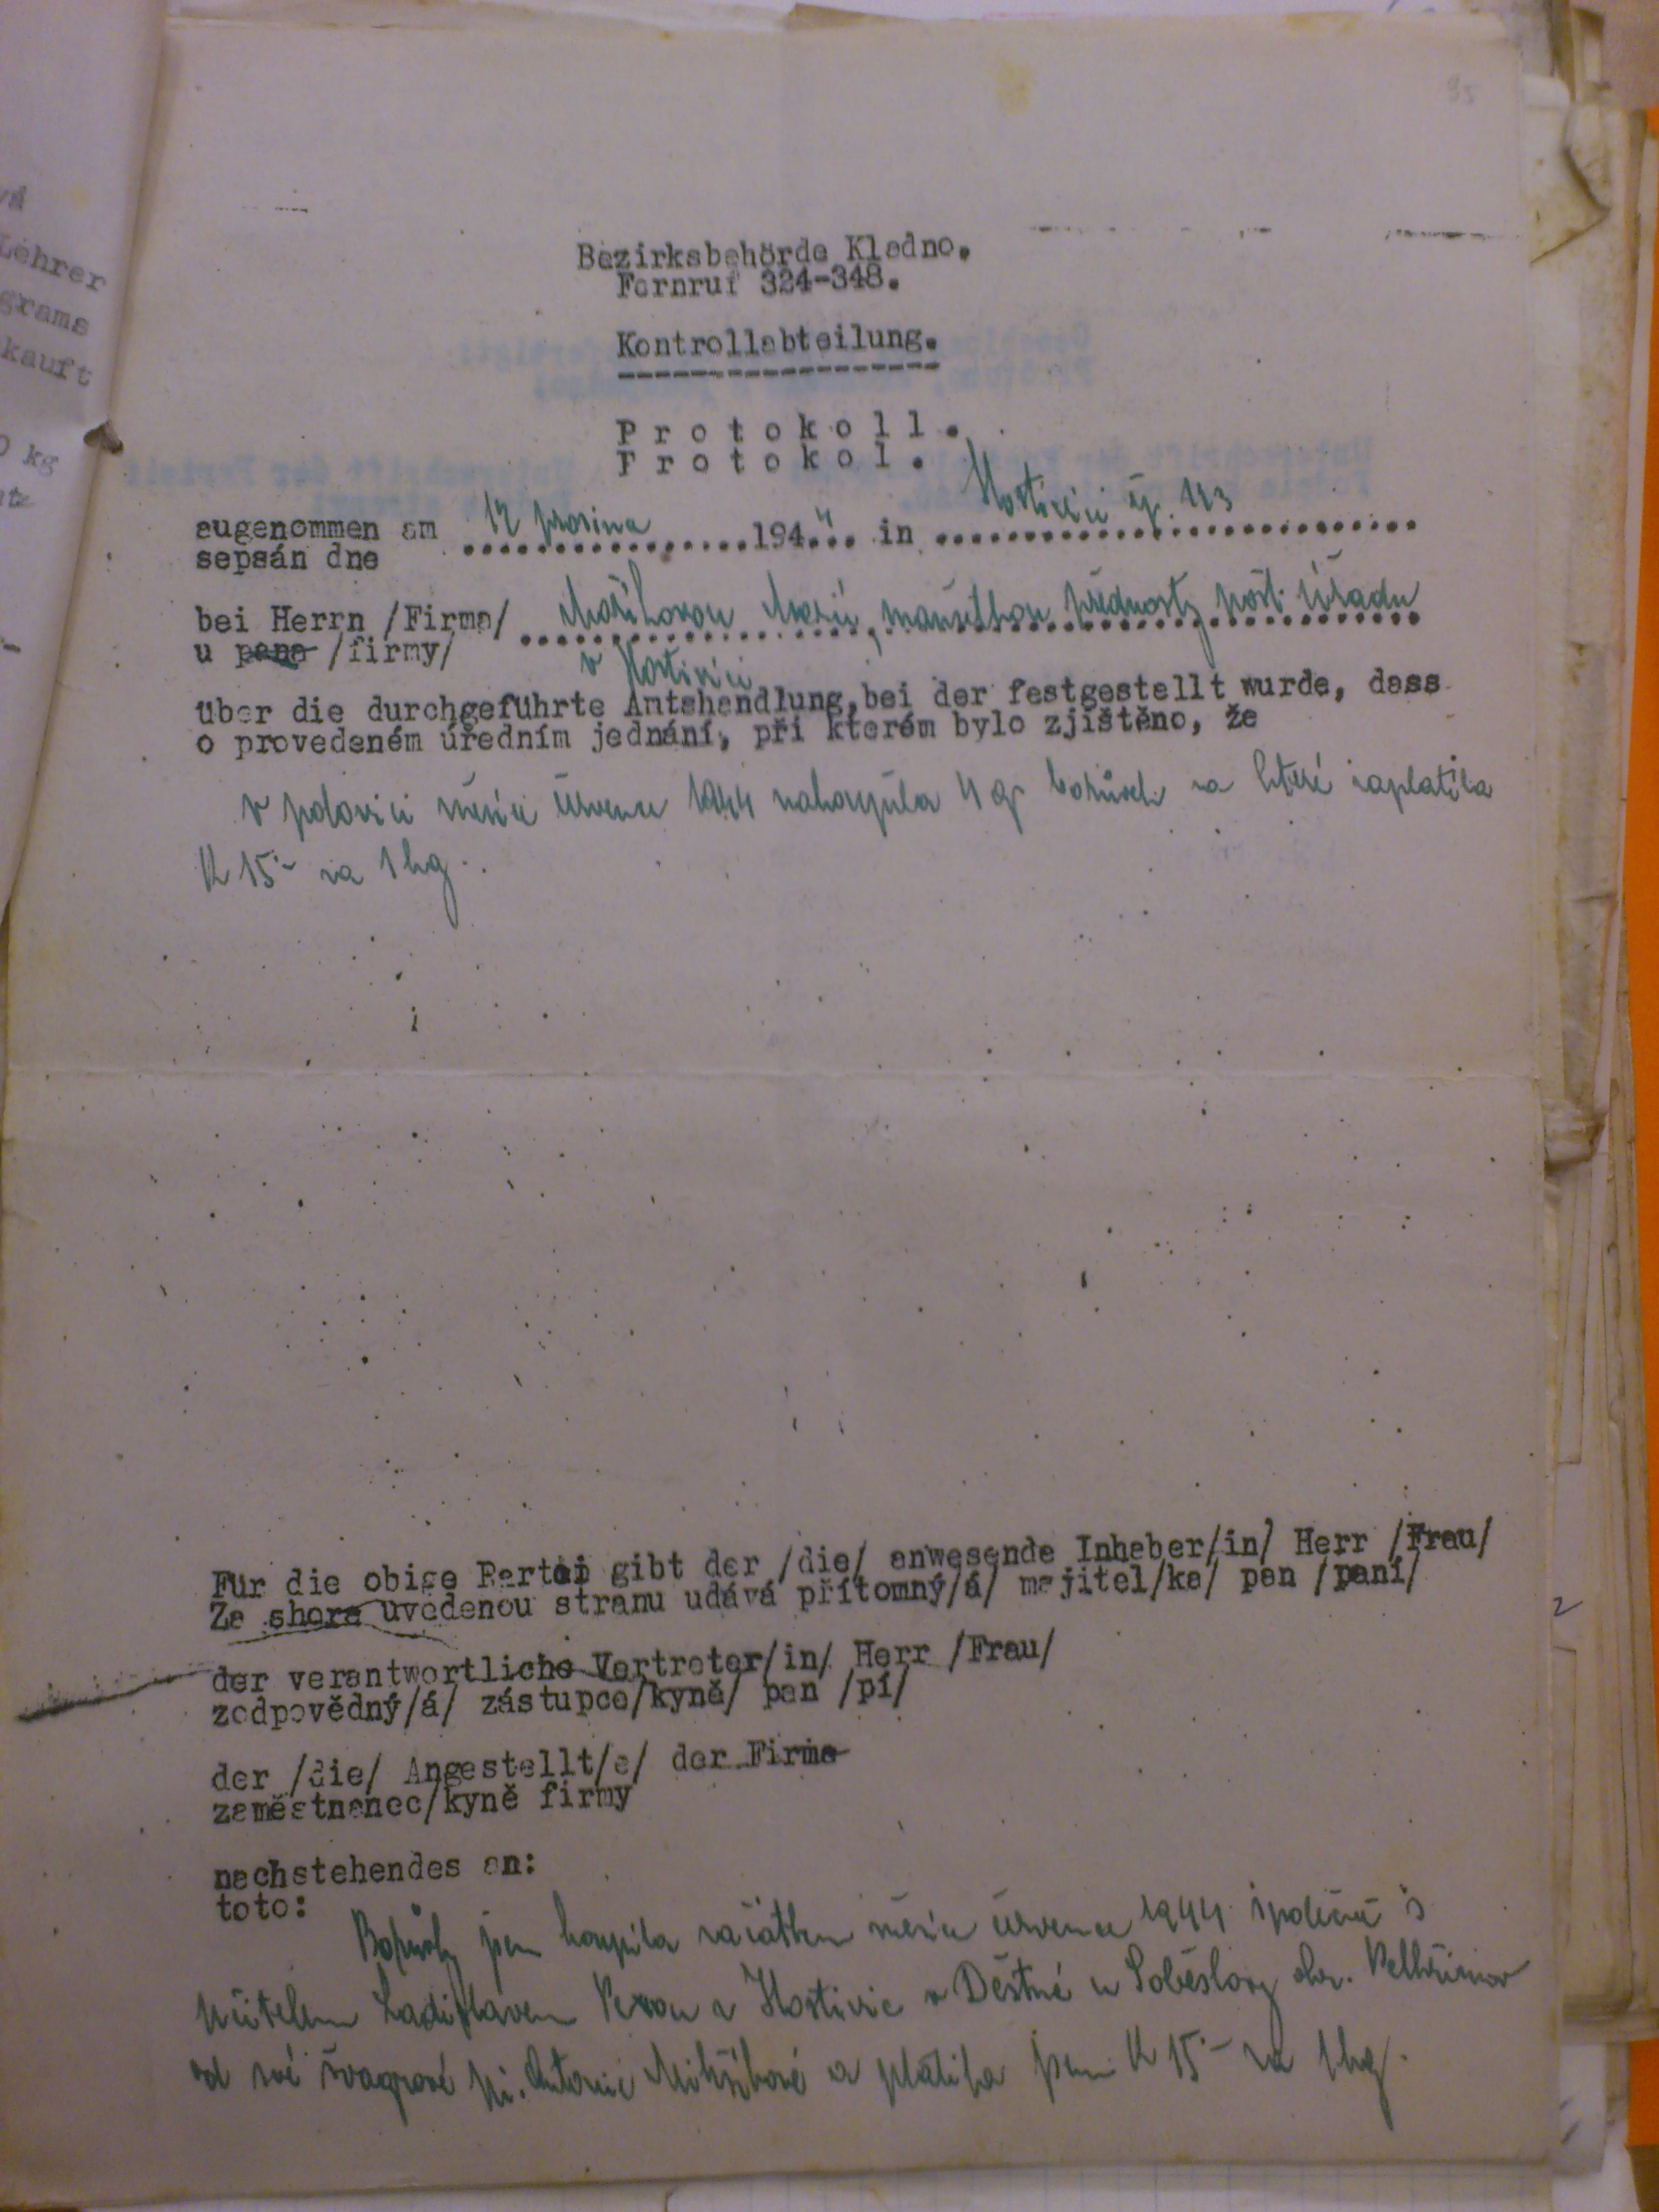 95
vá
Lehrer
grams
kauft
0 kg
Bezirksbehörde Kladno.
Fernruf 324-348.
Kontrollabteilung.
Protokoll.
Protokol.
augenommen am 12 prosince 1944 in Hostivici čp. 123
sepsán dne
bei Herrn /Firma/ Marii, manželkou přednosty pošt. úřadu
u pana /firmy/ v Hostivici
über die durchgeführte Amtshandlung, bei der festgestellt wurde, dass
o provedeném úředním jednání, při kterém bylo zjištěno, že
v polovici měsíce července 1944 nakoupila 4 q borůvek za které zaplatila
K 15·- za 1 kg.
Für die obige Partei gibt der /die/ anwesende Inhaber/in/ Herr /Frau/
Za shora uvedenou stranu udává přítomný/á/ majitel/ka/ pan /paní/
der verantwortliche Vertreter/in/ Herr /Frau/
zodpovědný/á/ zástupce/kyně/ pan /pí/
der /die/ Angestellt/e/ der Firma
zaměstnanec/kyně firmy
nachstehendes an:
toto:
Borůvky jsem koupila začátkem měsíce července 1944 společně s
učitelem Ladislavem z Hostivic v Deštné u Soběslavy okr. Pelhřimov
od své švagrové pí. Antonie a platila jsem K 15·- za 1 kg.